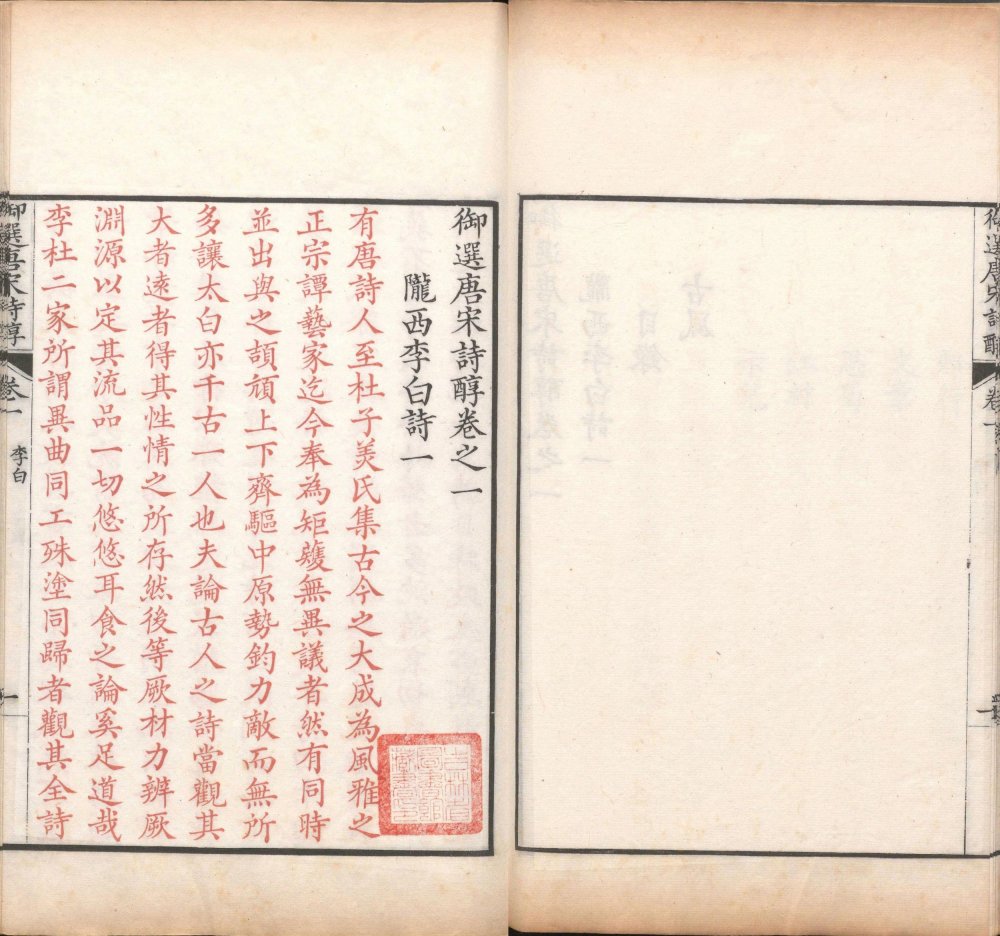 御選唐宋詩醇
卷一
御選唐宋詩醇卷之一
隴西李白詩一
有唐詩人至杜子美氏集古今之大成為風雅之
正宗譚藝家迄今奉為矩矱無異議者然有同時
並出與之頡頏上下齊驅中原勢鈞力敵而無所
多讓太白亦千古一人也夫論古人之詩當觀其
大者遠者得其性情之所存然後等厥材力辨厥
淵源以定其流品一切悠悠耳食之論奚足道哉
李杜二家所謂異曲同工殊塗同歸者觀其全詩
御選唐宋詩醇
卷一
李白
一
吉林省
圖書館
藏書章